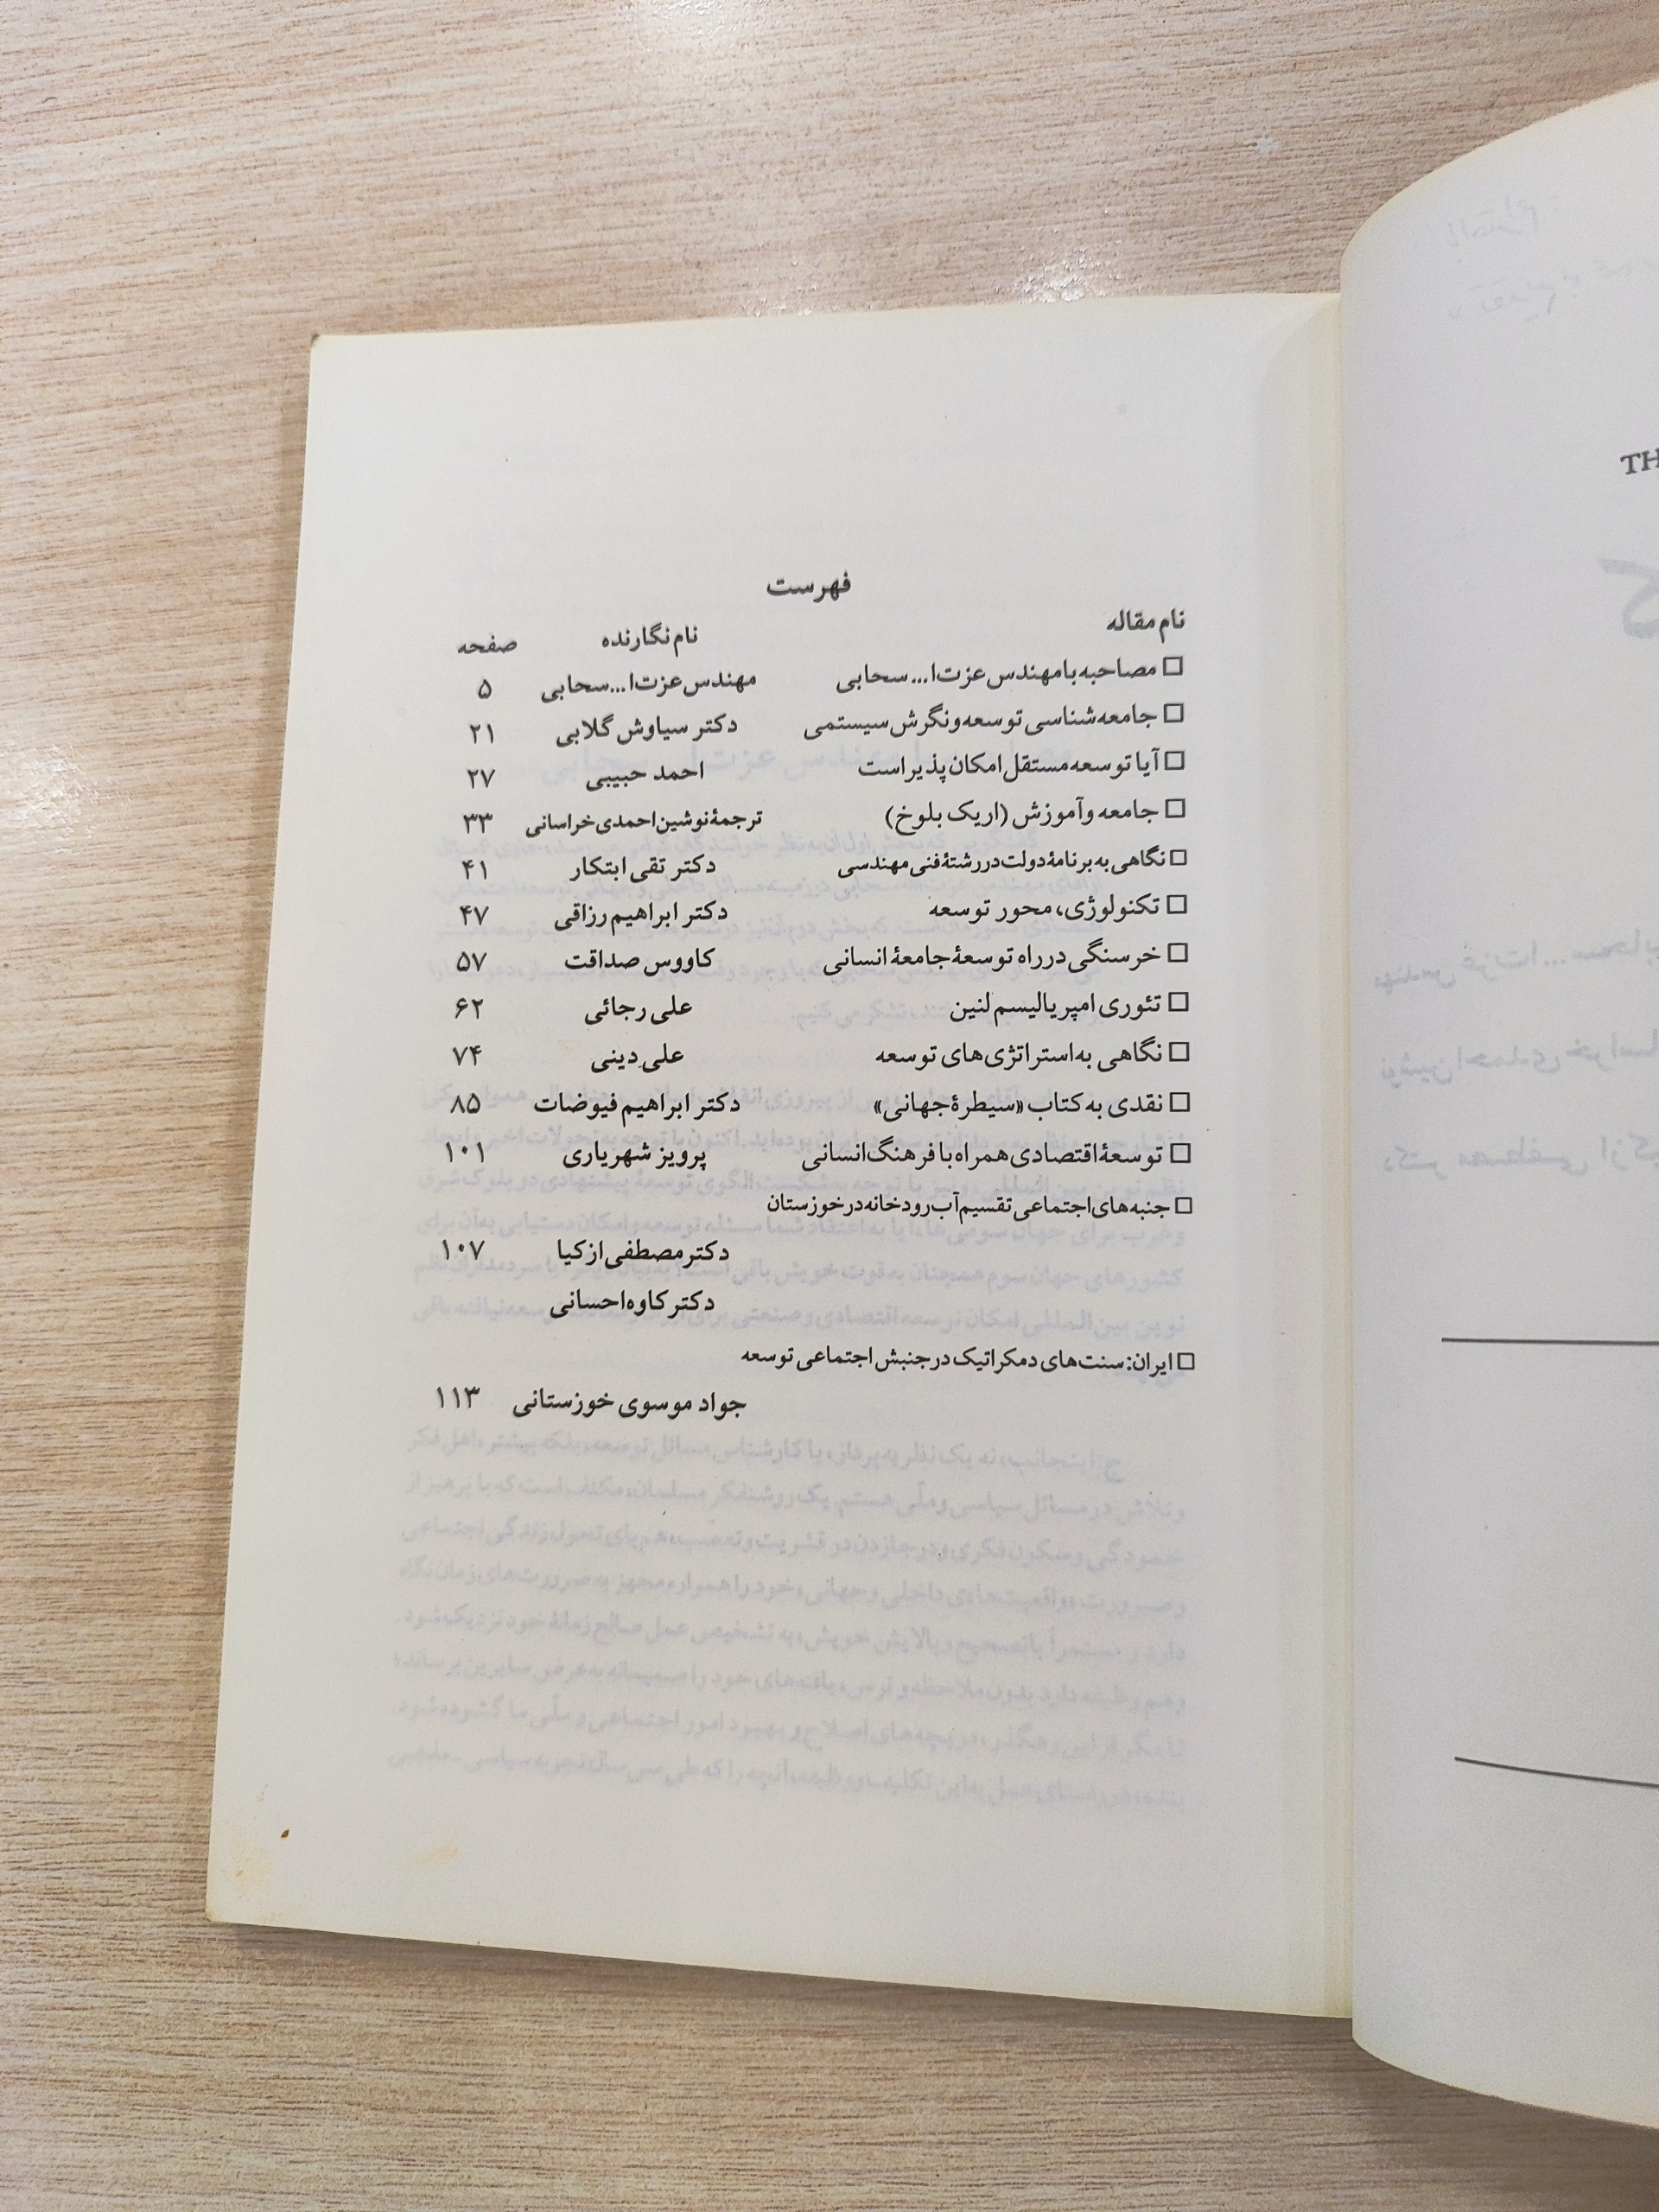 فهرست
نام مقاله نام نگارنده صفحه
□ مصاحبه با مهندس عزت‌ا... سحابی مهندس عزت‌ا... سحابی ۵
□ جامعه‌شناسی توسعه و نگرش سیستمی دکتر سیاوش گلابی ۲۱
□ آیا توسعه مستقل امکان‌پذیر است احمد حبیبی ۲۷
□ جامعه و آموزش (اریک بلوخ) ترجمهٔ نوشین احمدی خراسانی ۳۳
□ نگاهی به برنامهٔ دولت در رشتهٔ فنی مهندسی دکتر تقی ابتکار ۴۱
□ تکنولوژی، محور توسعه دکتر ابراهیم رزاقی ۴۷
□ خرسنگی در راه توسعهٔ جامعهٔ انسانی کاووس صداقت ۵۷
□ تئوری امپریالیسم لنین علی رجائی ۶۲
□ نگاهی به استراتژی‌های توسعه علی دینی ۷۴
□ نقدی به کتاب «سیطرهٔ جهانی» دکتر ابراهیم فیوضات ۸۵
□ توسعهٔ اقتصادی همراه با فرهنگ انسانی پرویز شهریاری ۱۰۱
□ جنبه‌های اجتماعی تقسیم آب رودخانه در خوزستان
دکتر مصطفی ازکیا ۱۰۷
دکتر کاوه احسانی
□ ایران: سنت‌های دمکراتیک در جنبش اجتماعی توسعه
جواد موسوی خوزستانی ۱۱۳
TH